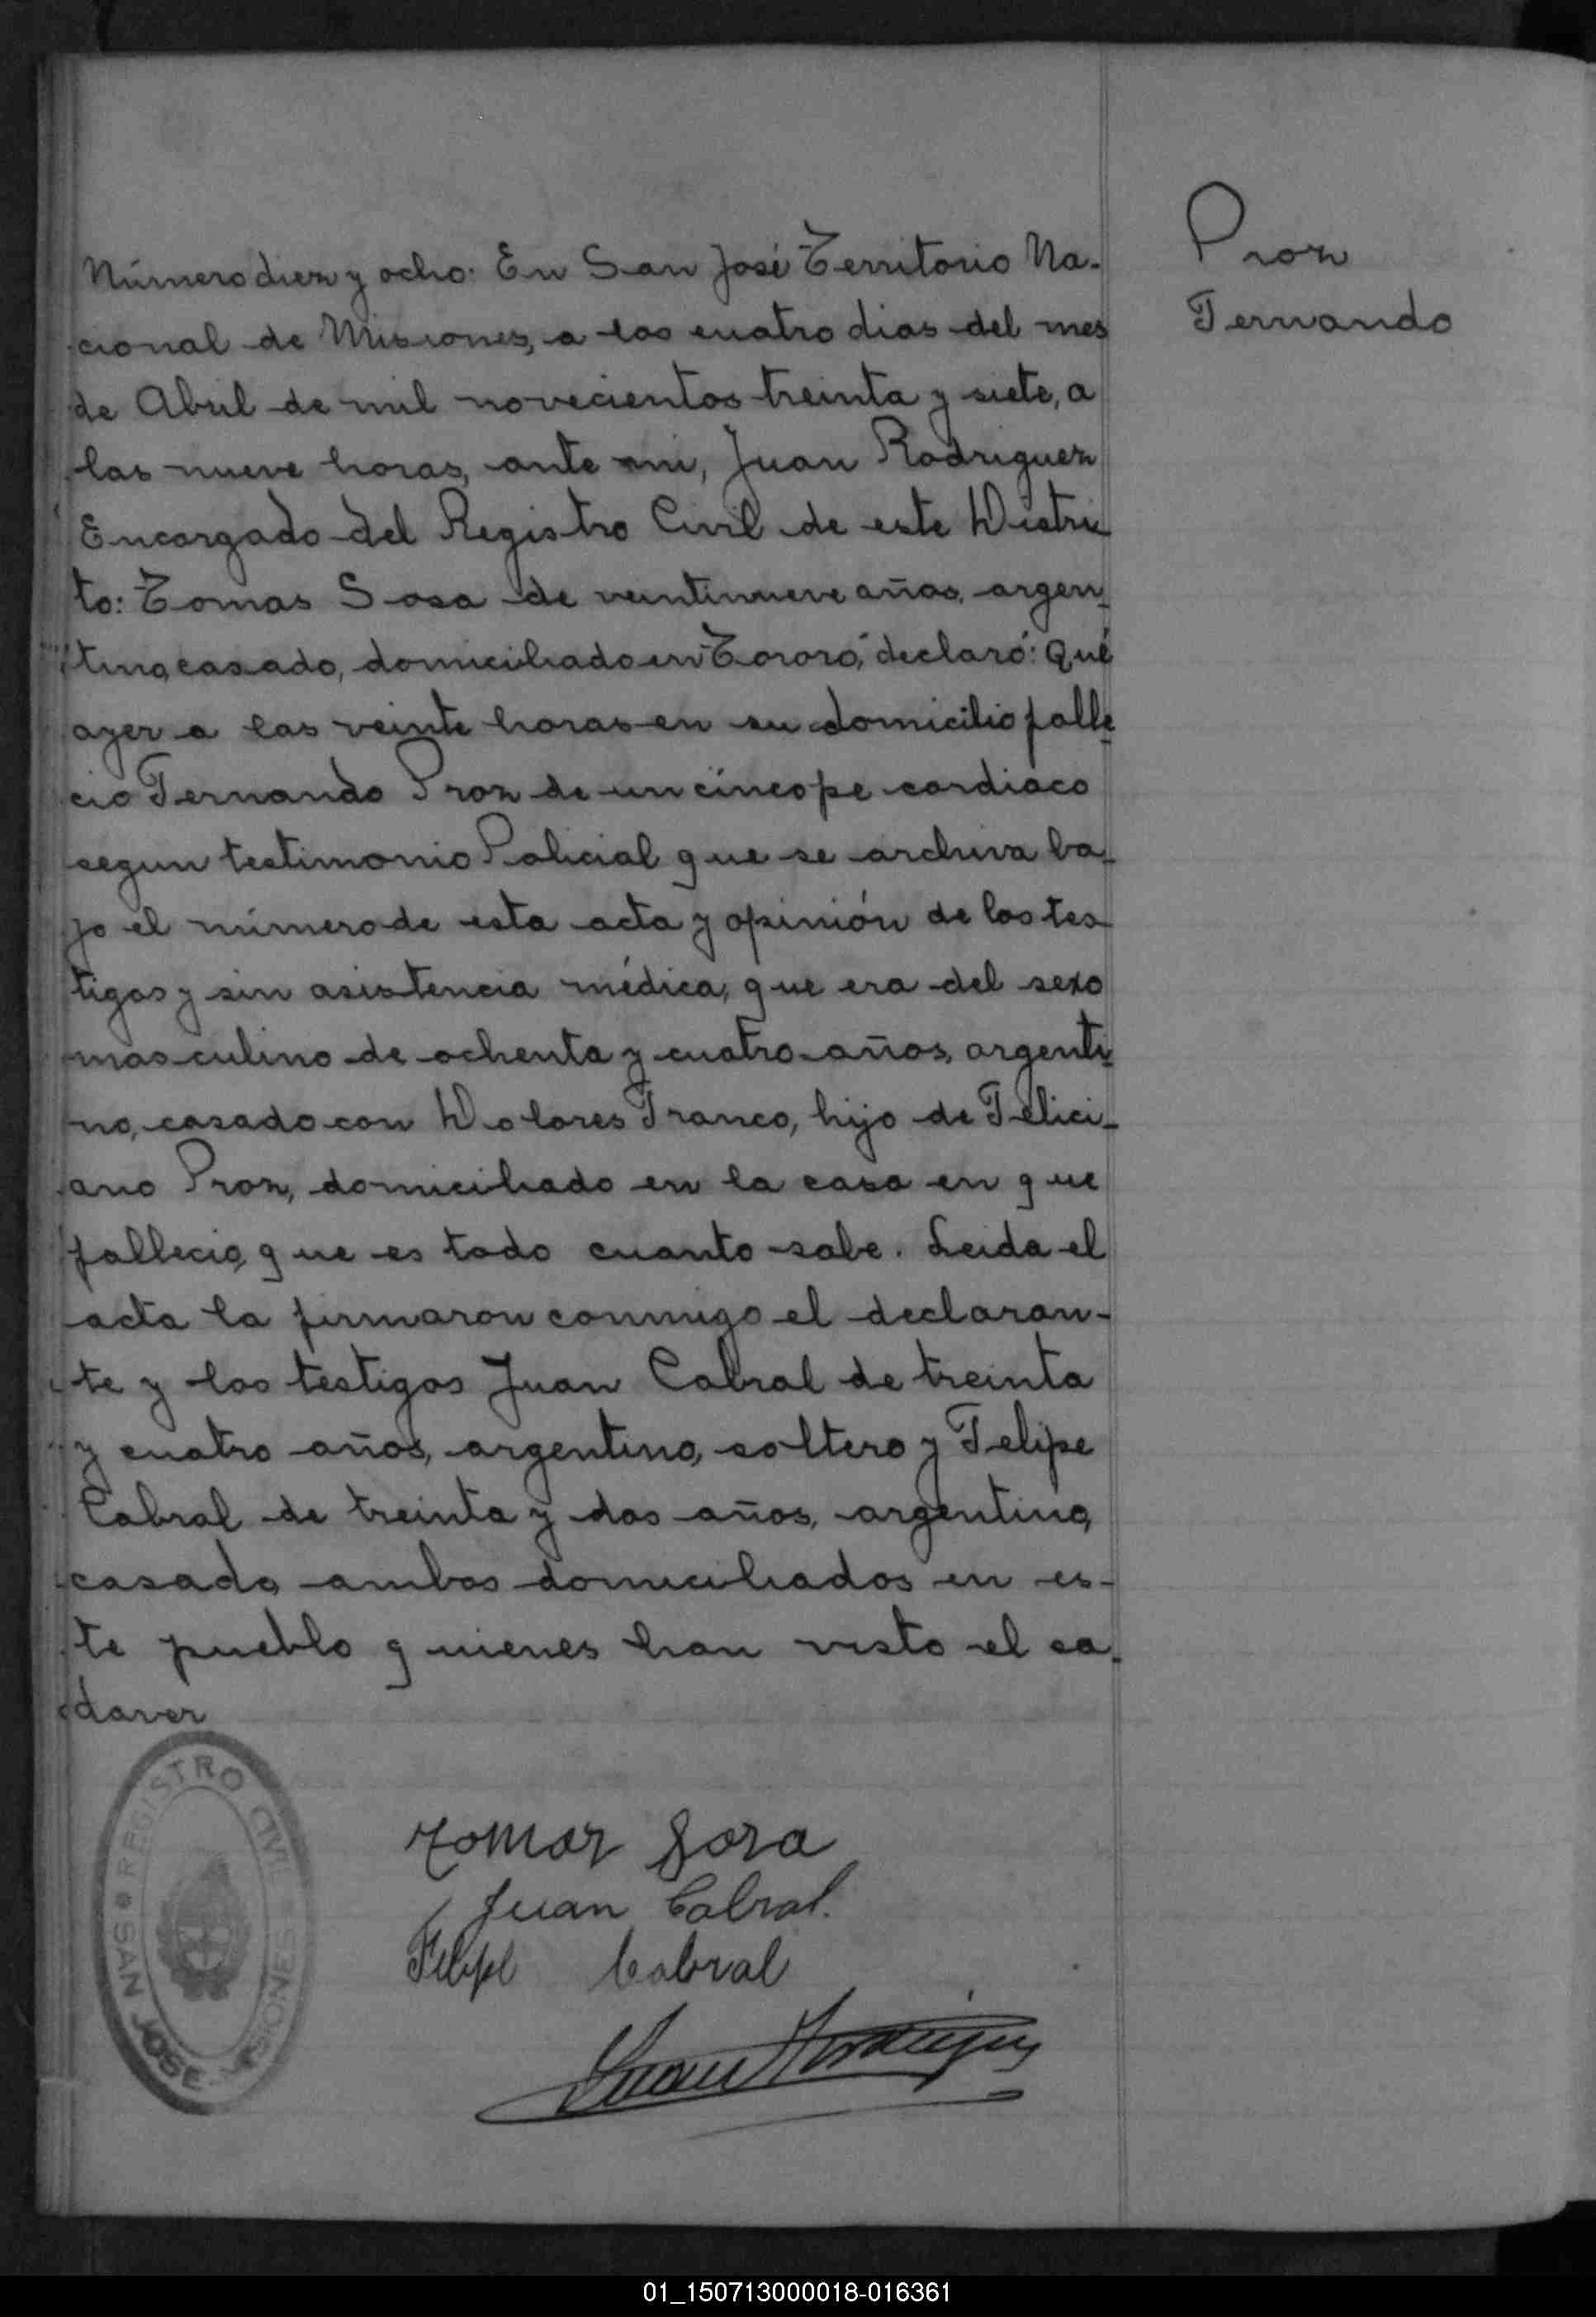 Proz
Fernando
Número diez y ocho: En San José Territorio Na-
cional de Misiones, a los cuatro dias del mes
de Abril de mil novecientos treinta y siete, a
las nueve horas, ante mi, Juan Rodriguez
Encargado del Registro Civil de este Distri
to: Tomas Sosa de veintinueve años, argen-
tino, casado, domiciliado en "Tororó", declaró: Qué
ayer a las veinte horas en su domicilio falle-
cio Fernando Proz de un cíncope cardiaco
segun testimonio Policial que se archiva ba-
jo el número de esta acta y opinión de los tes-
tigos y sin asistencia médica, que era del sexo
masculino de ochenta y cuatro años, argenti-
no, casado con Dolores Franco, hijo de Felici-
ano Proz, domiciliado en la casa en que
fallecio, que es todo cuanto sabe. Leida el
acta la firmaron conmigo el declaran-
te y los testigos Juan Cabral de treinta
y cuatro años, argentino, soltero y Felipe
Cabral de treinta y dos años, argentino,
casado, ambos domiciliados en es-
te pueblo quienes han visto el ca-
daver
REGISTRO CIVIL
SAN JOSE - MISIONES
Tomas Sosa
Juan Cabral.
Felipe Cabral
Juan Rodriguez
01_150713000018-016361